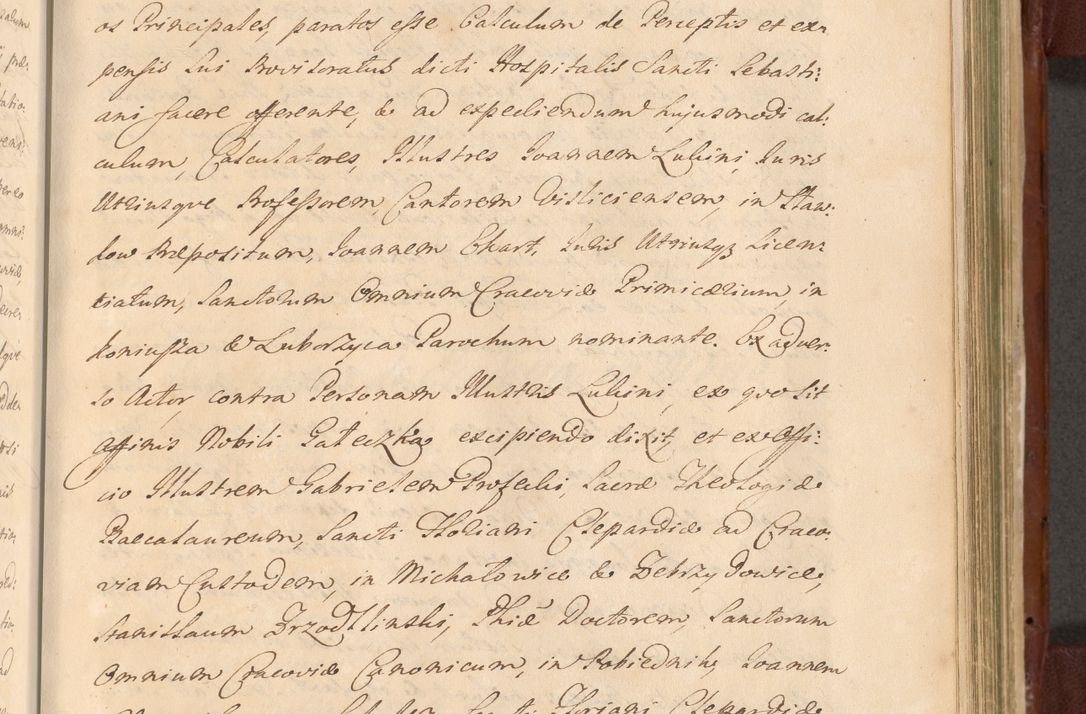 os Principales, paratos esse Calculum de Perceptis et ex¬
pensis sui Provisoratus dicti Hospitalis Sancti Sebasti:
ani facere offerente, & ad expediendum hujusmodi cal:
culum, Calculatores, Illustres Joannem Lukini, Juris
Utriusque Professorem, Cantorem Visliciensem, in Staw:
kow Præpositum, Joannem Ekart, Juris Utriusqz Licen:
tiatum, Sanctorum Omnium Cracoviæ Primicærium, in
Koniusza & Luborzyca Parochum nominante. Ex adver:
so Actor contra Personam Illustris Lukini, ex quo sit
Affinis Nobili Gałeczka excipiendo dixit, et ex Offi:
cio Illustrem Gabrielem Profecki, Sacræ Theologiæ
Baccalaureum, Sancti Floriani Clepardiæ ad Craco:
viam Custodem, in Michałowice & Zebrzydowice,
Stanislaum Drzodllinski, Phiæ Doctorem, Sanctorum
Omnium Cracoviæ Canonicum, in Kobiednik, Joannem
Floriani Clepardiæ